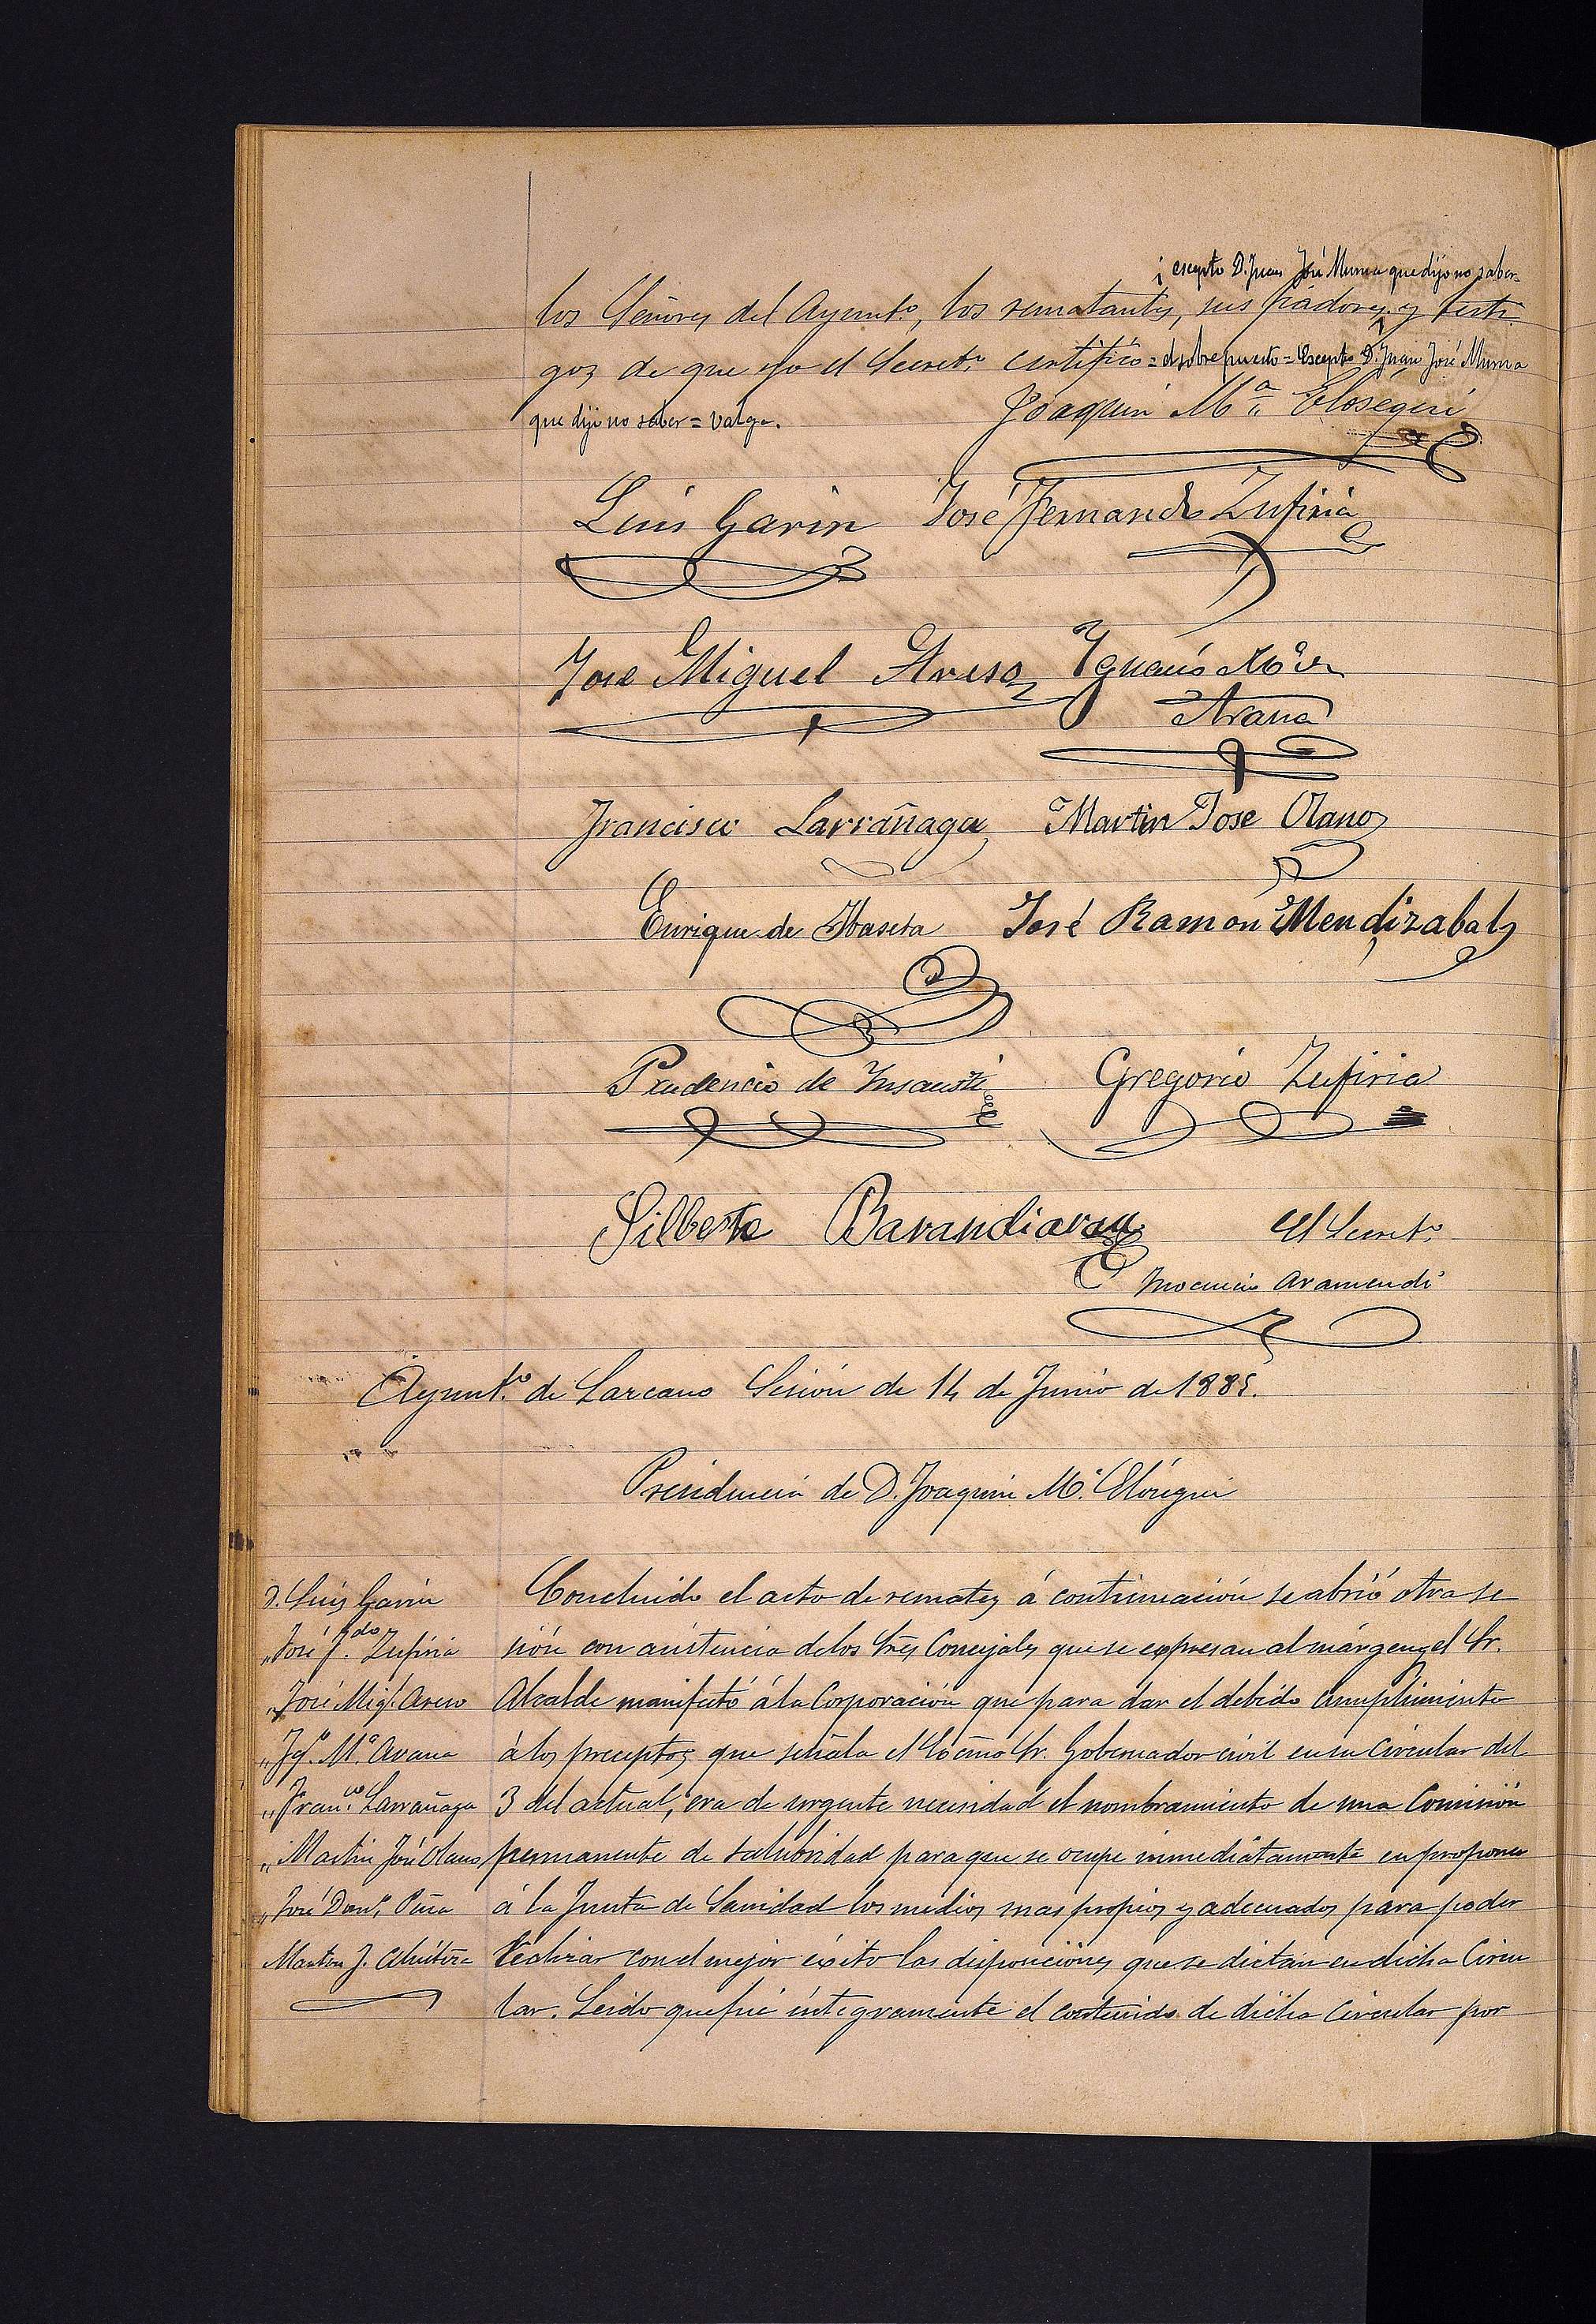 escepto D. Juan José Munoa que dijo no saber
los Señores del Ayunto., los rematantes, sus fiadores y testi
gos de que yo el Secreto. certifico = el sobrepuesto = Escepto D. Juan José Munoa
que dijo no saber = valga.
Joaquin Ma. Elosegui
Luis Garin José Fernando Zufiria
Jose Miguel Areso Ygnacio Ma. de
Arana
Francisco Larrañaga Martin Jose Olano
Enrique de Ybaseta José Ramon Mendizabal
Prudencio de Insausti Gregorio Zufiria
Silberte Barandiaran El Secreto.
Inocencio Aramendi
Ayunto. de Lazcano Sesión de 14 de Junio de 1885.
Presidencia de D. Joaquin Ma. Elósegui
D. Luis Garin
„ José Fdo. Zufiria
„ José Migl. Areso
„ Ygo. Ma. Arana
„ Franco. Larrañaga
„ Martin José Olano
„ José Peña
Martin J.
Concluido el acto de remates á continuación se abrió otra se
sión con asistencia de los Sres. Concejales que se expresan al márgen y el Sr.
Alcalde manifestó á la Corporación que para dar el debido cumplimiento
á los preceptos que señala el Excmo Sr. Gobernador civil en su Circular del
3 del actual, era de urgente necesidad el nombramiento de una Comisión
permanente de salubridad para que se ocupe inmediatamente en proponer
á la Junta de Sanidad los medios mas propios y adecuados para poder
realizar con el mejor éxito las disposiciones que se dictan en dicha Circu
lar. Leido que fué integramente el contenido de dicha Circular por